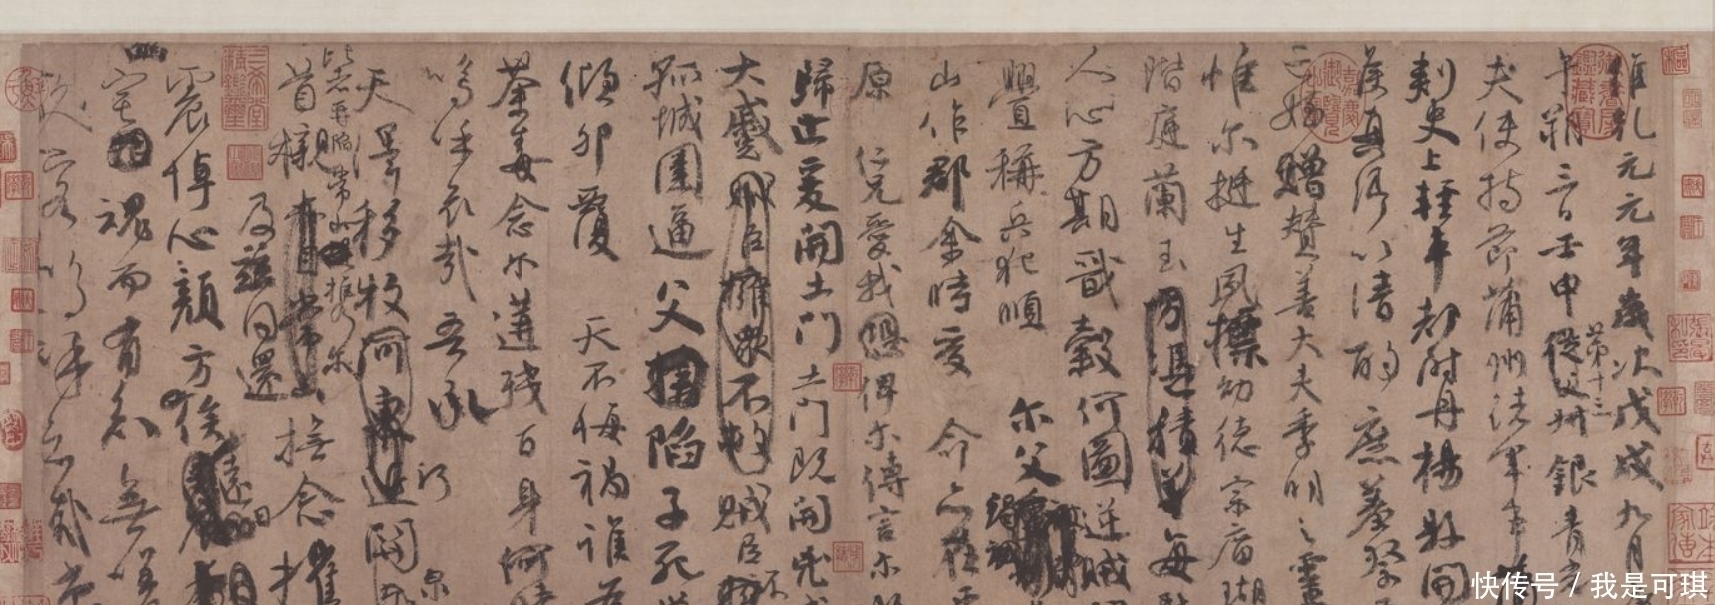 維乾元元年歲次戊戌九月
午朔三日壬申第十三從父叔銀青光
夫使持節蒲州諸軍事
刺史上輕車都尉丹楊縣開
侯真卿以清酌庶羞祭
亡姪贈贊善大夫季明之靈
惟爾挺生夙標幼德宗廟瑚
階庭蘭玉方憑積善每慰
人心方期戩穀何圖逆賊間
釁稱兵犯順 爾父竭誠
山作郡余時受 命亦在平
原仁兄愛我恐俾爾傳言爾既
歸止爰開土門土門既開兇威
大蹙賊臣擁眾不救賊臣不
孤城圍逼父擒陷子死巢
傾卵覆 天不悔禍誰為
荼毒念爾遘殘百身何贖
嗚呼哀哉 吾承
天澤移牧河東近河關泉
比者再陷常山攜爾
首櫬及茲同還
撫念摧
震悼心顏方俟遠日
宅魂而有知無嗟
久客嗚呼哀哉尚
快传号 / 我是可琪